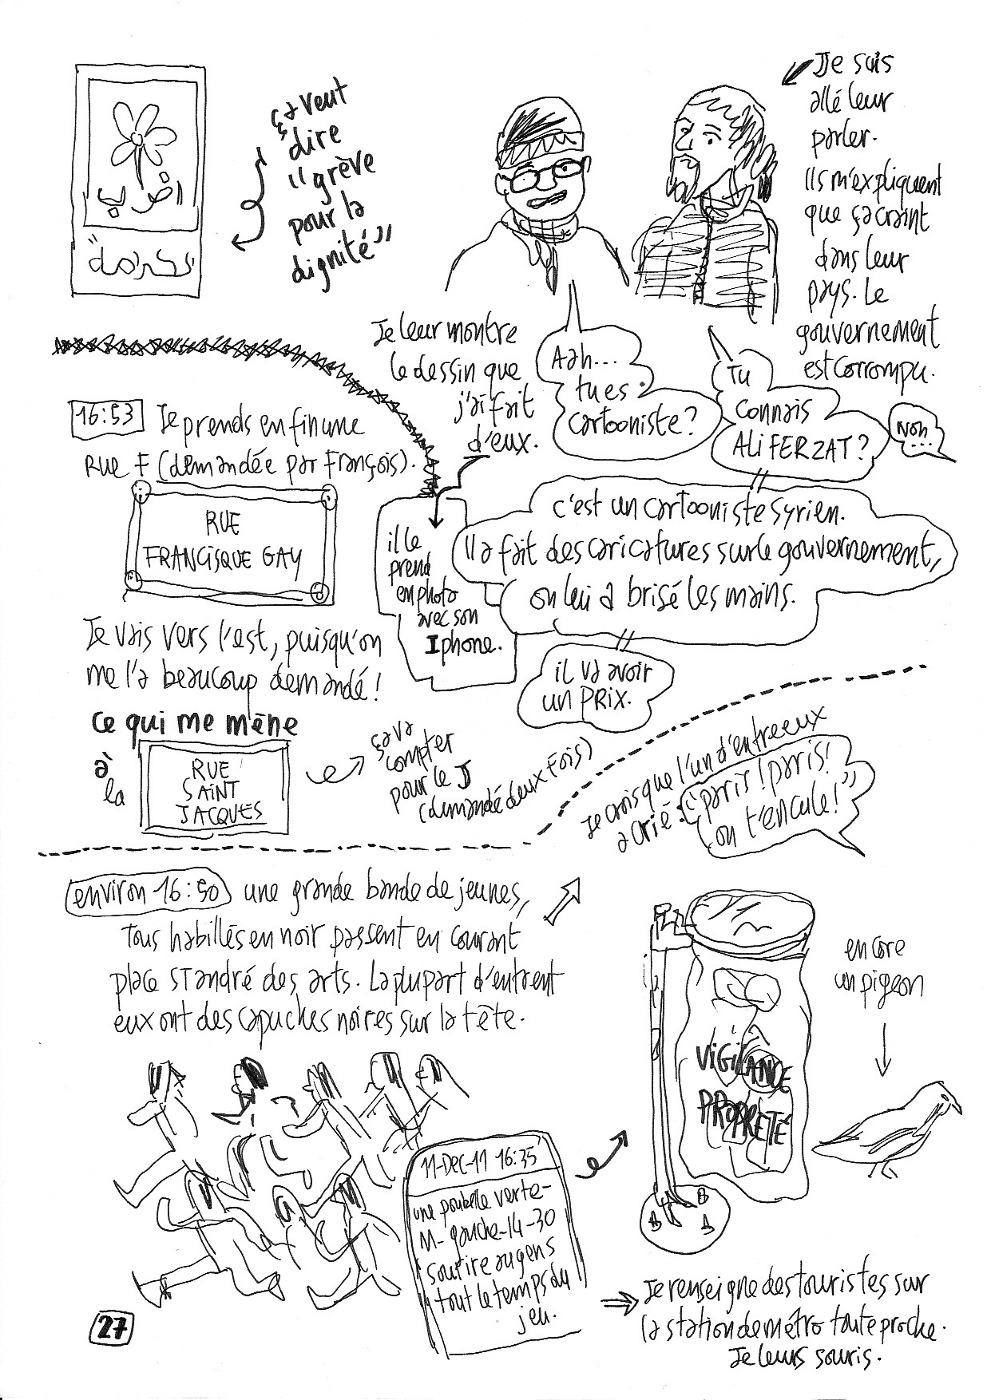 اضراب
لكرامة
ça veut
dire
"grève
pour la
dignité"
Je suis
allé leur
parler.
Ils m'expliquent
que ça craint
dans leur
pays. Le
gouvernement
est corrompu.
Je leur montre
le dessin que
j'ai fait
d'eux.
Aah...
tu es
cartooniste?
Tu
connais
ALI FERZAT?
Non
...
c'est un cartooniste syrien.
Il a fait des caricatures sur le gouvernement,
on lui a brisé les mains.
il va avoir
un PRIX.
il le
prend
en photo
avec son
Iphone.
16:53 Je prends enfin une
RUE F (demandée par François).
RUE
FRANCISQUE GAY
Je vais vers l'est, puisqu'on
me l'a beaucoup demandé!
ce qui me mène
à
la
RUE
SAINT
JACQUES
ça va
compter
pour le J
(demandé deux fois)
Je crois que l'un d'entre eux
a crié:
"paris! paris!
on t'encule!"
environ 16:50 une grande bande de jeunes,
tous habillés en noir passent en courant
place St André des arts. La plupart d'entrent
eux ont des capuches noires sur la tête.
11-Dec-11 16:35
une poubelle verte-
M-gauche-14-30
sourire au gens
tout le temps du
jeu.
VIGILANCE
PROPRETÉ
encore
un pigeon
Je renseigne des touristes sur
la station de métro toute proche.
Je leurs souris.
27